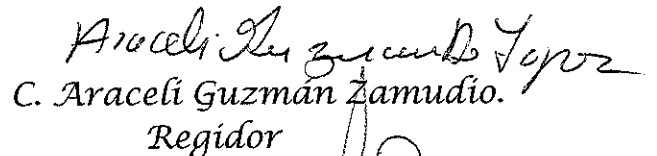 Araceli Guzman D Lopez
C. Araceli Guzmán Zamudio.
Regidor